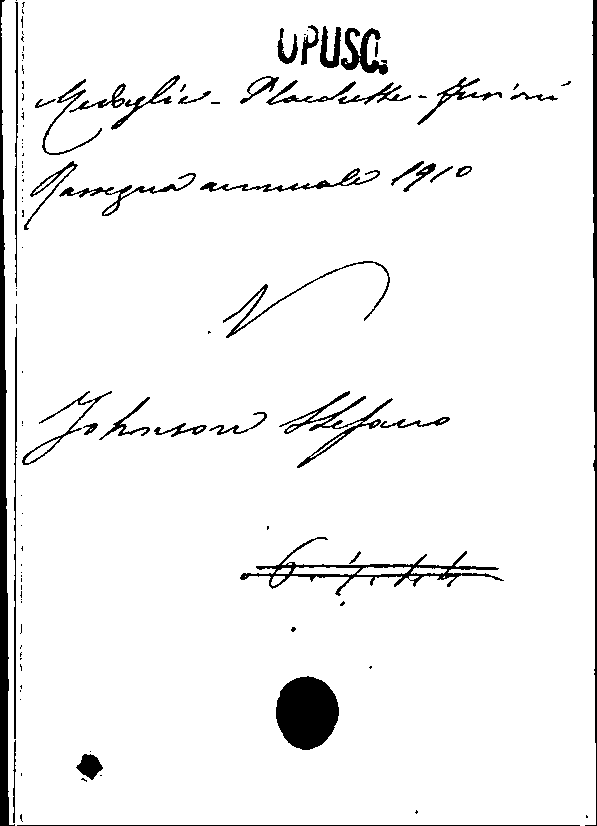 OPUSC.
Medaglie - Placchette - Fusioni
Rassegna annuale 1910
V
Johnson Stefano